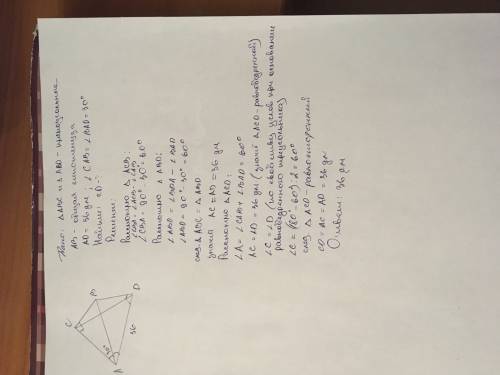 Дано: △ABC и △ABD - прямоугольные
AB - общая гипотенуза
AD = 36 дм; ∠CAB = ∠BAD = 30°
Найти: CD - ?
Решение:
Рассмотрим △ACB:
∠CBA = 90° - 30° = 60°
Рассмотрим △ABD:
∠ABD = ∠BDA - ∠BAD
∠ABD = 90° - 30° = 60°
след. △ABC = △ABD
значит AC = AD = 36 дм
Рассмотрим △ACD:
∠A = ∠CAB + ∠BAD = 60°
AC = AD = 36 дм (значит △ACD - равнобедренный)
∠C = ∠D (по свойству углов при основании
равнобедренного треугольника)
∠C = (180° - 60°) : 2 = 60°
след. △ACD - равносторонний
CD = AC = AD = 36 дм
Ответ: 36 дм
C
B
D
A
36